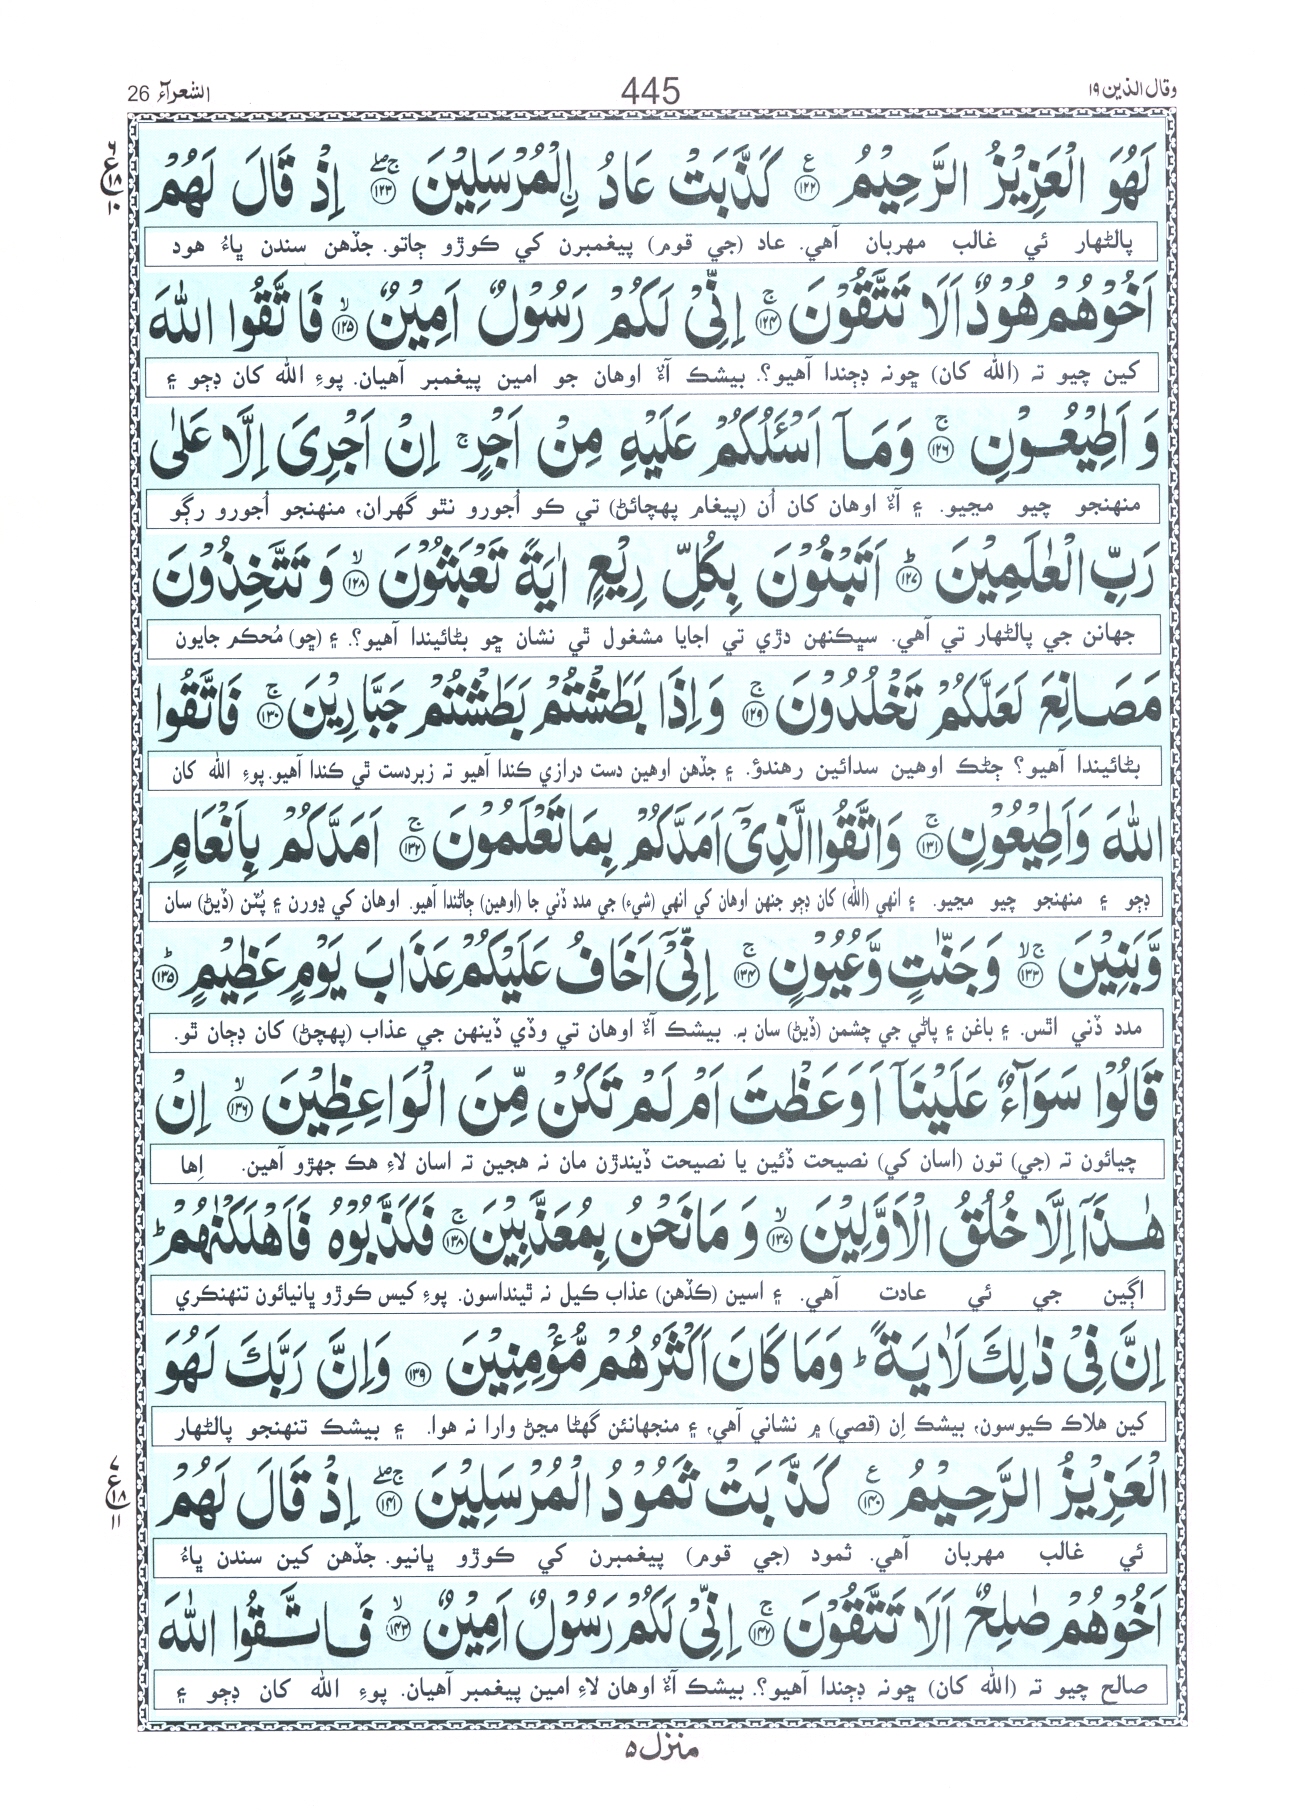 وقال الذين ۱۹
445
الشعرآء 26
لَهُوَ الْعَزِيْزُ الرَّحِيْمُ ۝۱۲۲ كَذَّبَتْ عَادُ ۨالْمُرْسَلِيْنَ ۝۱۲۳ اِذْ قَالَ لَهُمْ
پالڻهار ئي غالب مهربان آهي. عاد (جي قوم) پيغمبرن کي ڪوڙو ڄاتو. جڏهن سندن ڀاءُ هود
اَخُوْهُمْ هُوْدٌ اَلَا تَتَّقُوْنَ ۝۱۲۴ اِنِّىْ لَكُمْ رَسُوْلٌ اَمِيْنٌ ۝۱۲۵ فَاتَّقُوا اللّٰهَ
کين چيو ته (الله کان) ڇونه ڊڄندا آهيو؟. بيشڪ آءٌ اوهان جو امين پيغمبر آهيان. پوءِ الله کان ڊڄو ۽
وَ اَطِيْعُوْنِ ۝۱۲۶ وَمَآ اَسْـَٔلُكُمْ عَلَيْهِ مِنْ اَجْرٍ ۚ اِنْ اَجْرِىَ اِلَّا عَلٰى
منهنجو چيو مڃيو. ۽ آءٌ اوهان کان اُن (پيغام پهچائڻ) تي ڪو اُجورو نٿو گهران، منهنجو اُجورو رڳو
رَبِّ الْعٰلَمِيْنَ ۝۱۲۷ اَتَبْنُوْنَ بِكُلِّ رِيْعٍ اٰيَةً تَعْبَثُوْنَ ۝۱۲۸ وَتَتَّخِذُوْنَ
جهانن جي پالڻهار تي آهي. سڀڪنهن دڙي تي اجايا مشغول ٿي نشان ڇو بڻائيندا آهيو؟. ۽ (ڇو) مُحڪم جايون
مَصَانِعَ لَعَلَّكُمْ تَخْلُدُوْنَ ۝۱۲۹ وَاِذَا بَطَشْتُمْ بَطَشْتُمْ جَبَّارِيْنَ ۝۱۳۰ فَاتَّقُوا
بڻائيندا آهيو؟ ڄڻڪ اوهين سدائين رهندؤ. ۽ جڏهن اوهين دست درازي ڪندا آهيو ته زبردست ٿي ڪندا آهيو. پوءِ الله کان
اللّٰهَ وَاَطِيْعُوْنِ ۝۱۳۱ وَاتَّقُوا الَّذِىْٓ اَمَدَّكُمْ بِمَا تَعْلَمُوْنَ ۝۱۳۲ اَمَدَّكُمْ بِاَنْعَامٍ
ڊڄو ۽ منهنجو چيو مڃيو. ۽ انهي (الله) کان ڊڄو جنهن اوهان کي انهي (شيء) جي مدد ڏني جا (اوهين) ڄاڻندا آهيو. اوهان کي ڍورن ۽ پُٽن (ڏيڻ) سان
وَّبَنِيْنَ ۝۱۳۳ وَجَنّٰتٍ وَّعُيُوْنٍ ۝۱۳۴ اِنِّىْٓ اَخَافُ عَلَيْكُمْ عَذَابَ يَوْمٍ عَظِيْمٍ ۝۱۳۵
مدد ڏني اٿس. ۽ باغن ۽ پاڻي جي چشمن (ڏيڻ) سان به. بيشڪ آءٌ اوهان تي وڏي ڏينهن جي عذاب (پهچڻ) کان ڊڄان ٿو.
قَالُوْا سَوَآءٌ عَلَيْنَآ اَوَعَظْتَ اَمْ لَمْ تَكُنْ مِّنَ الْوَاعِظِيْنَ ۝۱۳۶ اِنْ
چيائون ته (جي) تون (اسان کي) نصيحت ڏئين يا نصيحت ڏيندڙن مان نه هجين ته اسان لاءِ هڪ جهڙو آهين. اِها
هٰذَآ اِلَّا خُلُقُ الْاَوَّلِيْنَ ۝۱۳۷ وَ مَا نَحْنُ بِمُعَذَّبِيْنَ ۝۱۳۸ فَكَذَّبُوْهُ فَاَهْلَكْنٰهُمْ ؕ
اڳين جي ئي عادت آهي. ۽ اسين (ڪڏهن) عذاب ڪيل نه ٿينداسون. پوءِ کيس ڪوڙو ڀانيائون تنهنڪري
اِنَّ فِىْ ذٰلِكَ لَاٰيَةً ؕ وَمَا كَانَ اَكْثَرُهُمْ مُّؤْمِنِيْنَ ۝۱۳۹ وَاِنَّ رَبَّكَ لَهُوَ
کين هلاڪ ڪيوسون، بيشڪ اِن (قصي) ۾ نشاني آهي، ۽ منجهانئن گهڻا مڃڻ وارا نه هوا. ۽ بيشڪ تنهنجو پالڻهار
الْعَزِيْزُ الرَّحِيْمُ ۝۱۴۰ كَذَّبَتْ ثَمُوْدُ الْمُرْسَلِيْنَ ۝۱۴۱ اِذْ قَالَ لَهُمْ
ئي غالب مهربان آهي. ثمود (جي قوم) پيغمبرن کي ڪوڙو ڀانيو. جڏهن کين سندن ڀاءُ
اَخُوْهُمْ صٰلِحٌ اَلَا تَتَّقُوْنَ ۝۱۴۲ اِنِّىْ لَكُمْ رَسُوْلٌ اَمِيْنٌ ۝۱۴۳ فَاتَّقُوا اللّٰهَ
صالح چيو ته (الله کان) ڇونه ڊڄندا آهيو؟. بيشڪ آءٌ اوهان لاءِ امين پيغمبر آهيان. پوءِ الله کان ڊڄو ۽
منزل ۵